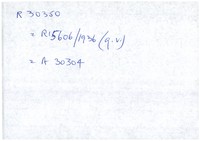 R 30350
= R15606/1936 (q.v.)
= A 30304